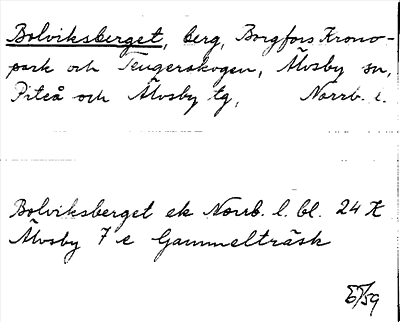 Bolviksberget, berg, Borgfors Krono-
park och Tengerskogen, Älvsby sn,
Piteå och Älvsby tg, Norrb. l.
Bolviksberget ek Norrb. l. bl. 24 K
Älvsby 7 e Gammelträsk